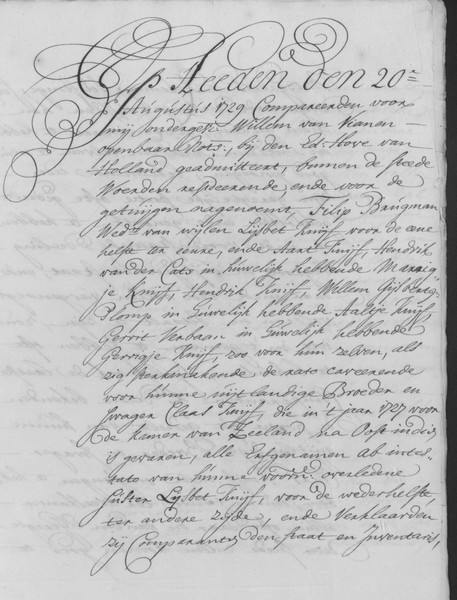 Op Heeden den 20en
Augustus 1729 Compareerden voor
mij ondergesz: Willem van Kanen
openbaar Nots:, bij den Ed: Hove van
Holland geadmitteert, binnen de stede
Woerden resideerende, ende voor de
getuijgen nagenoemt, Filip Brugman
Wedr. van wijlen Lijsbet Knijf voor de eene
helft ter eenre, ende Aart Knijf, Hendrik
van der Cats in huwelijk hebbende Marrig
je Knijf, Hendrik Knijf, Willem Gijsbertse
Plomp in huwelijk hebbende Aaltje Knijf,
Gerrit Verbaan in huwelijk hebbende
Gerrigje Knijf, zoo voor hun zelven, als
zig sterkmakende, de rato caveerende
voor hunne uijtlandige Broeder en
Swager Claas Knijf, die in 't jaar 1727 voor
de kamer van Zeeland na Oost indien
is gevaren, alle Erfgenamen ab intes-
tato van hunne voorn: overledene
suster Lijsbet Knijf, voor de wederhelfte
ter andere zijde, ende Verklaarden
zij Comparanten den staat en Inventaris,